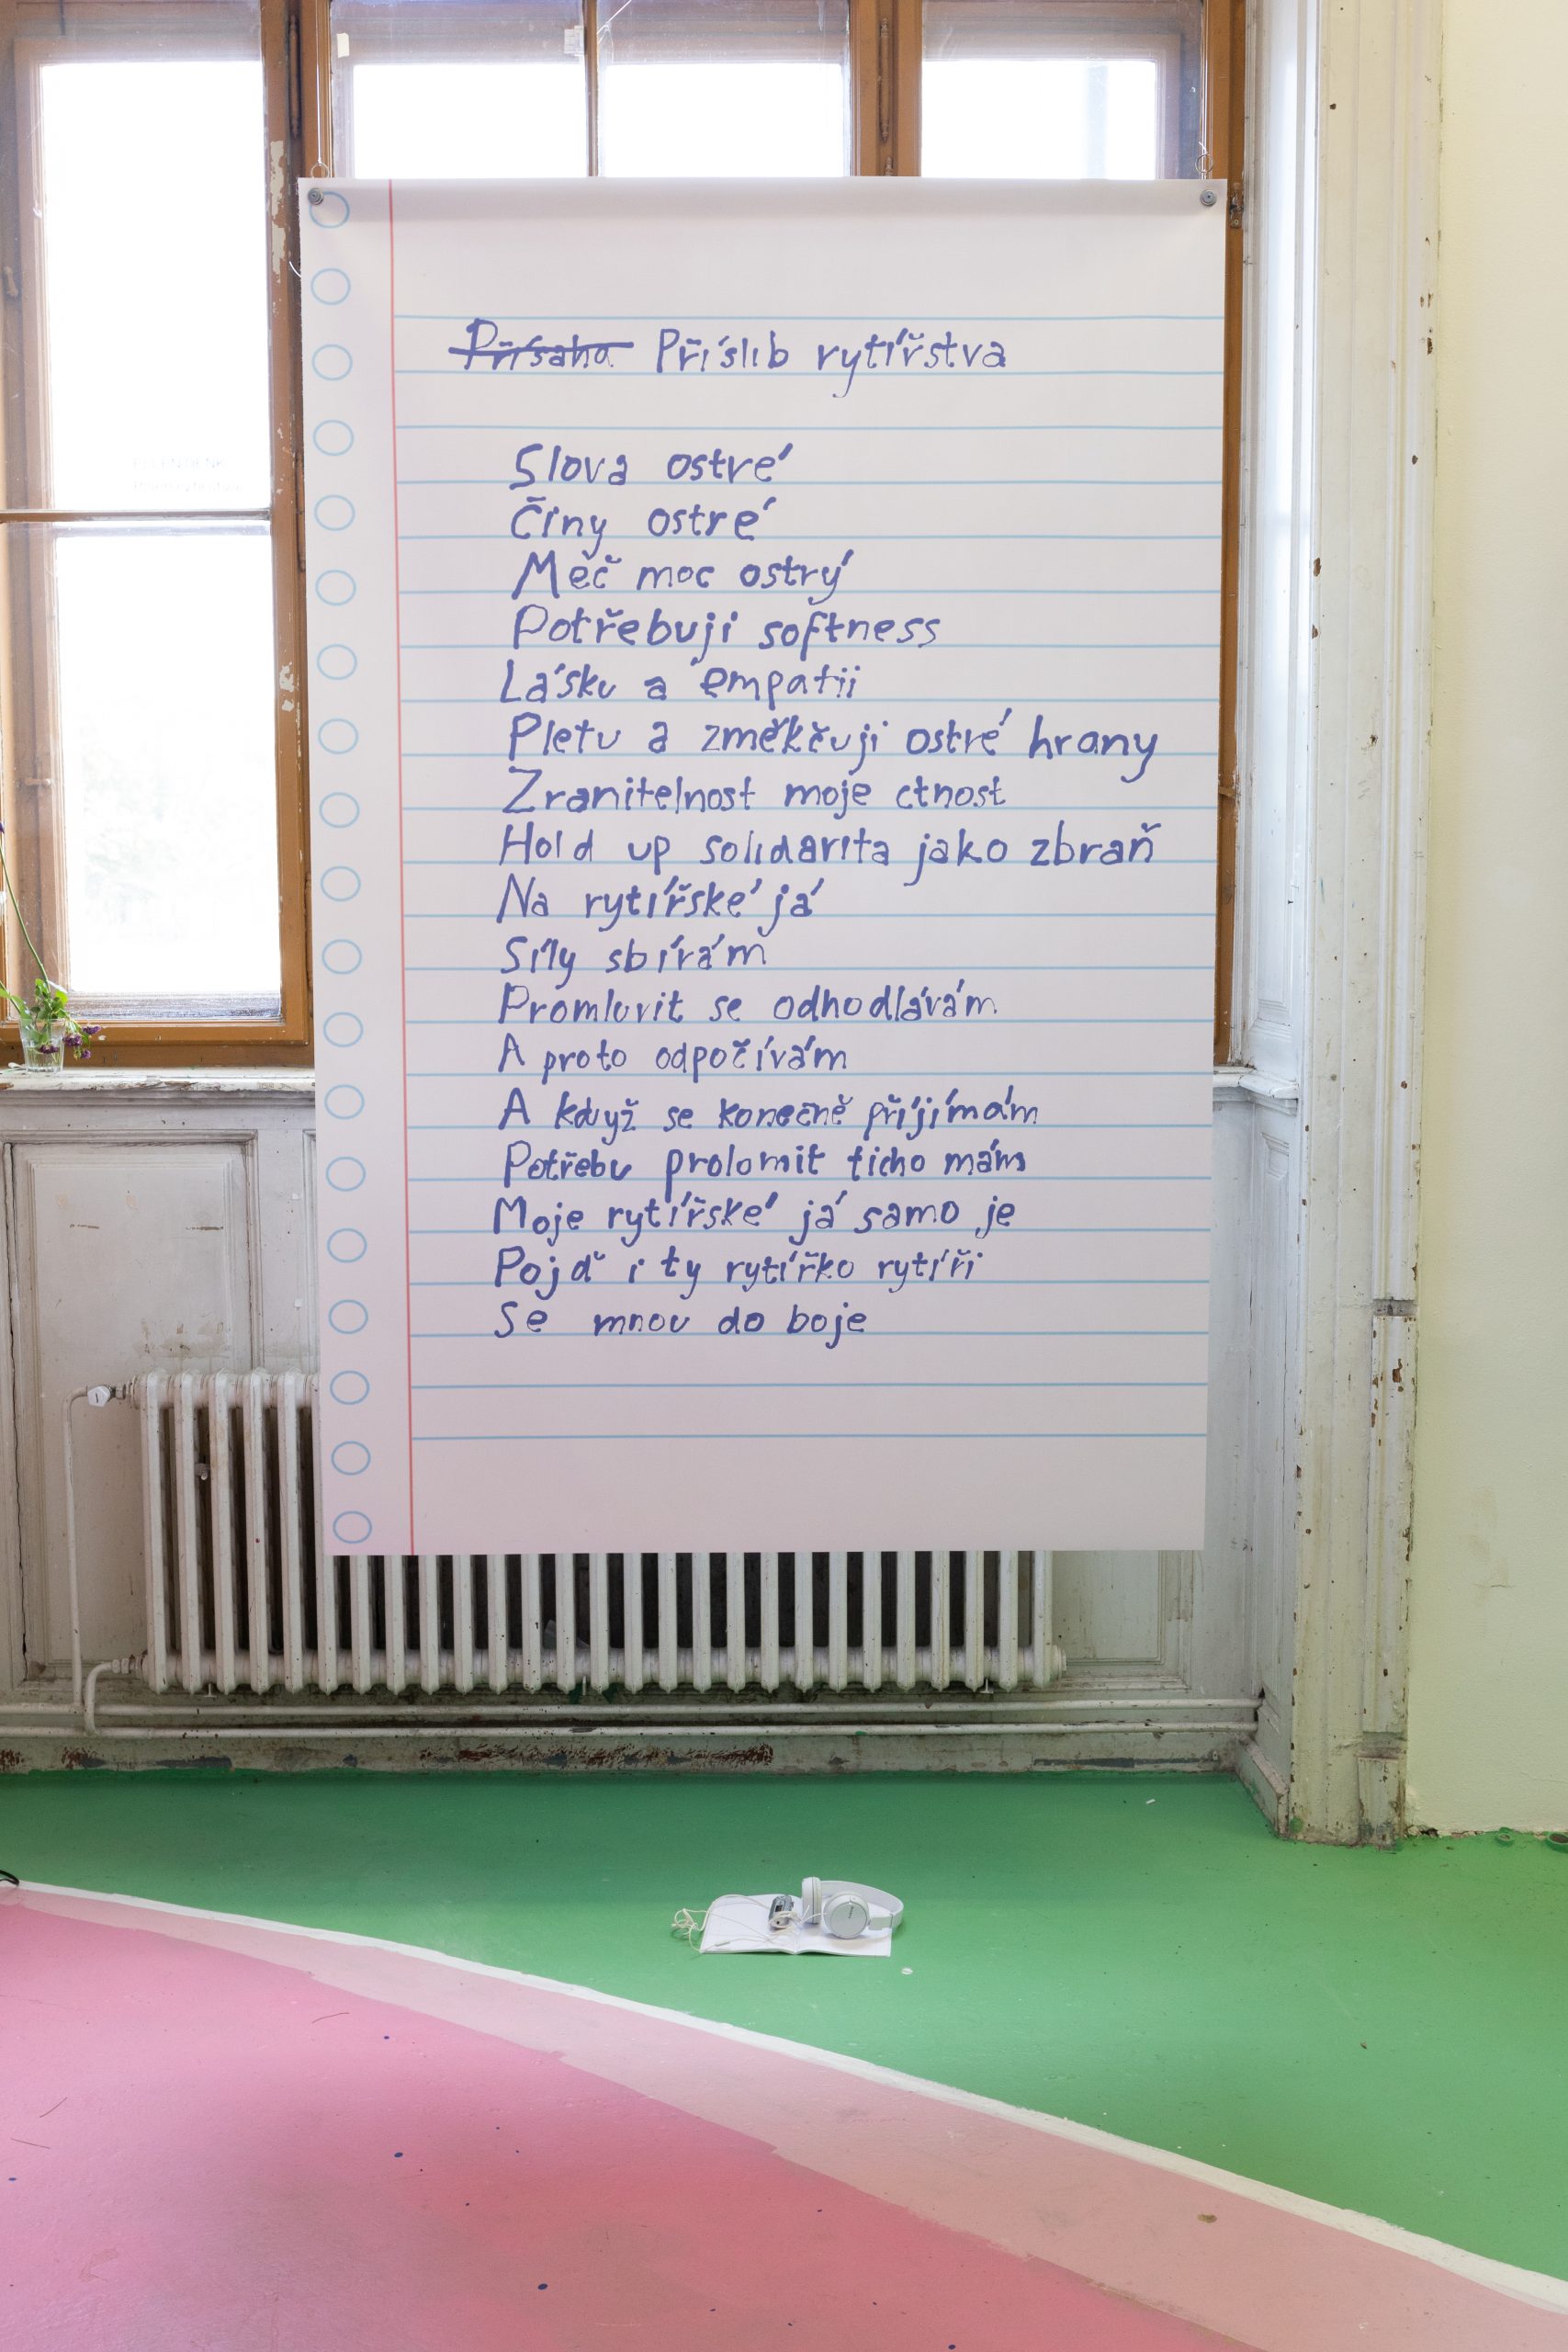 Přísaha Příslib rytířstva
Slova ostré
Činy ostré
Meč moc ostrý
Potřebuji softness
Lásku a empatii
Pletu a změkčuji ostré hrany
Zranitelnost moje ctnost
Hold up solidarita jako zbraň
Na rytířské já
Síly sbírám
Promluvit se odhodlávám
A proto odpočívám
A když se konečně přijímám
Potřebu prolomit ticho mám
Moje rytířské já samo je
Pojď i ty rytířko rytíři
Se mnou do boje